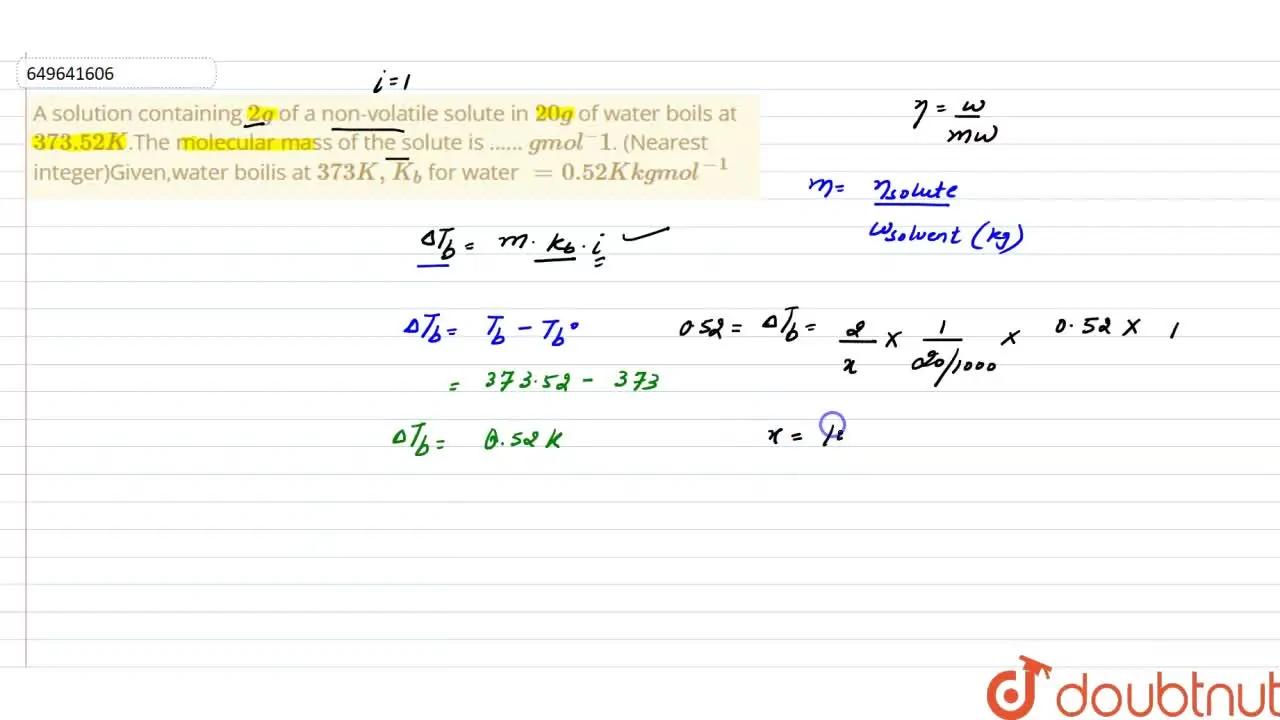 649641606
i=1
A solution containing 2g of a non-volatile solute in 20g of water boils at
373.52K.The molecular mass of the solute is ...... gmol⁻1. (Nearest
integer)Given,water boilis at 373K, K_b for water = 0.52Kkgmol⁻¹
η = w/mw
m = ηsolute/wsolvent (kg)
ΔT_b = m. k_b . i ✓
ΔT_b = T_b - T_b°
= 373.52 - 373
ΔT_b = 0.52 K
0.52 = ΔT_b = 2/x × 1/(020/1000) × 0.52 × 1
x =
doubtnut